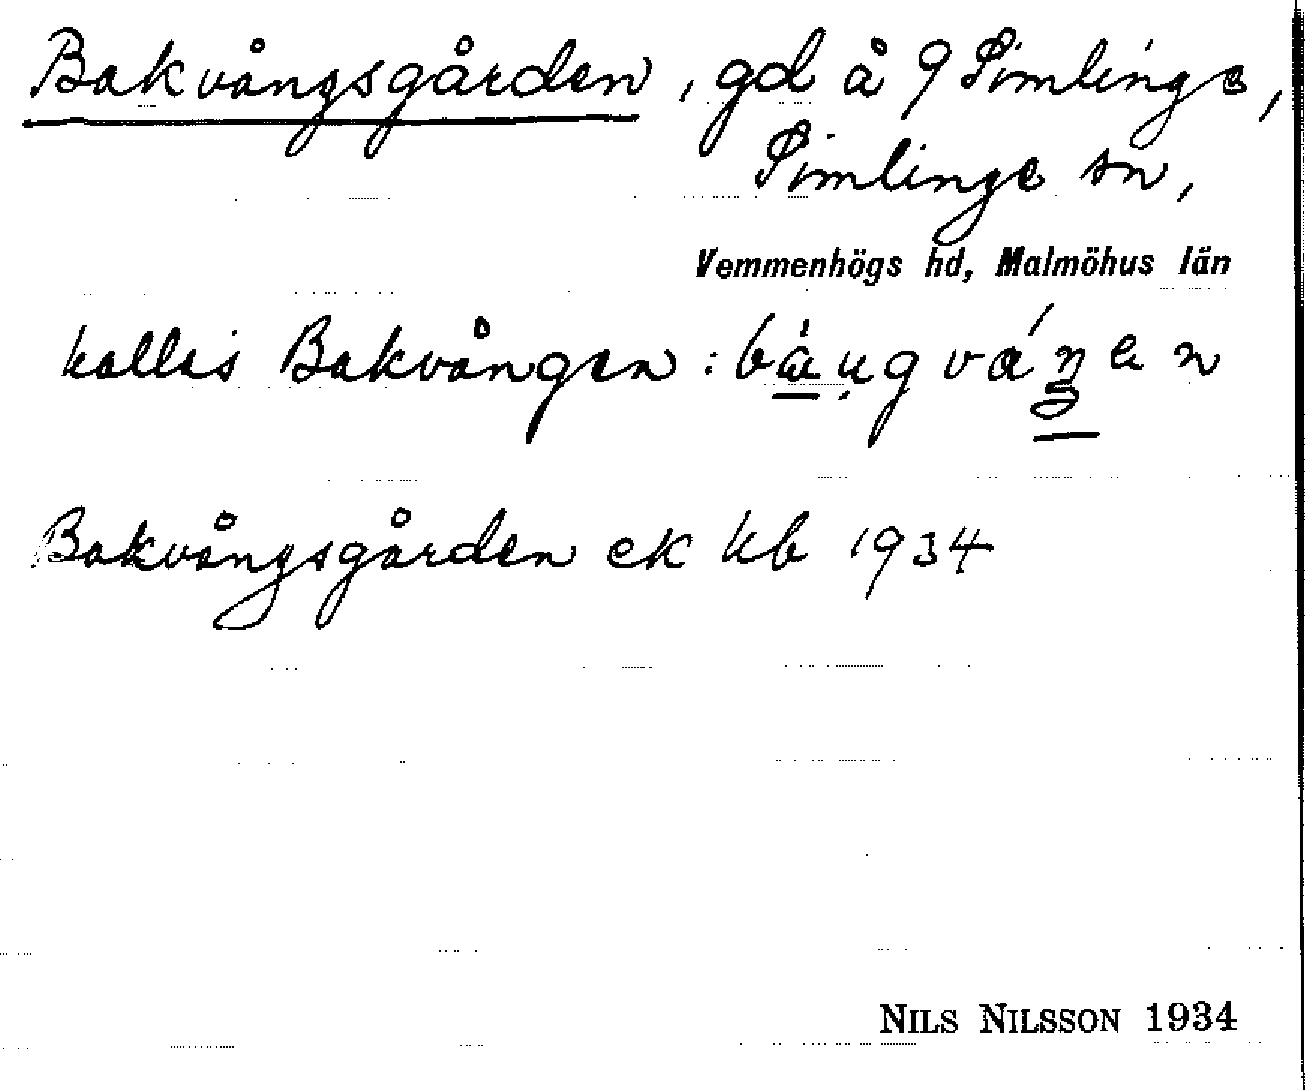 Bakvångsgården, gd å 9 Simlinge,
Simlinge sn,
Vemmenhögs hd, Malmöhus län
kallas Bakvången:
Bakvångsgården ek kb 1934
NILS NILSSON 1934